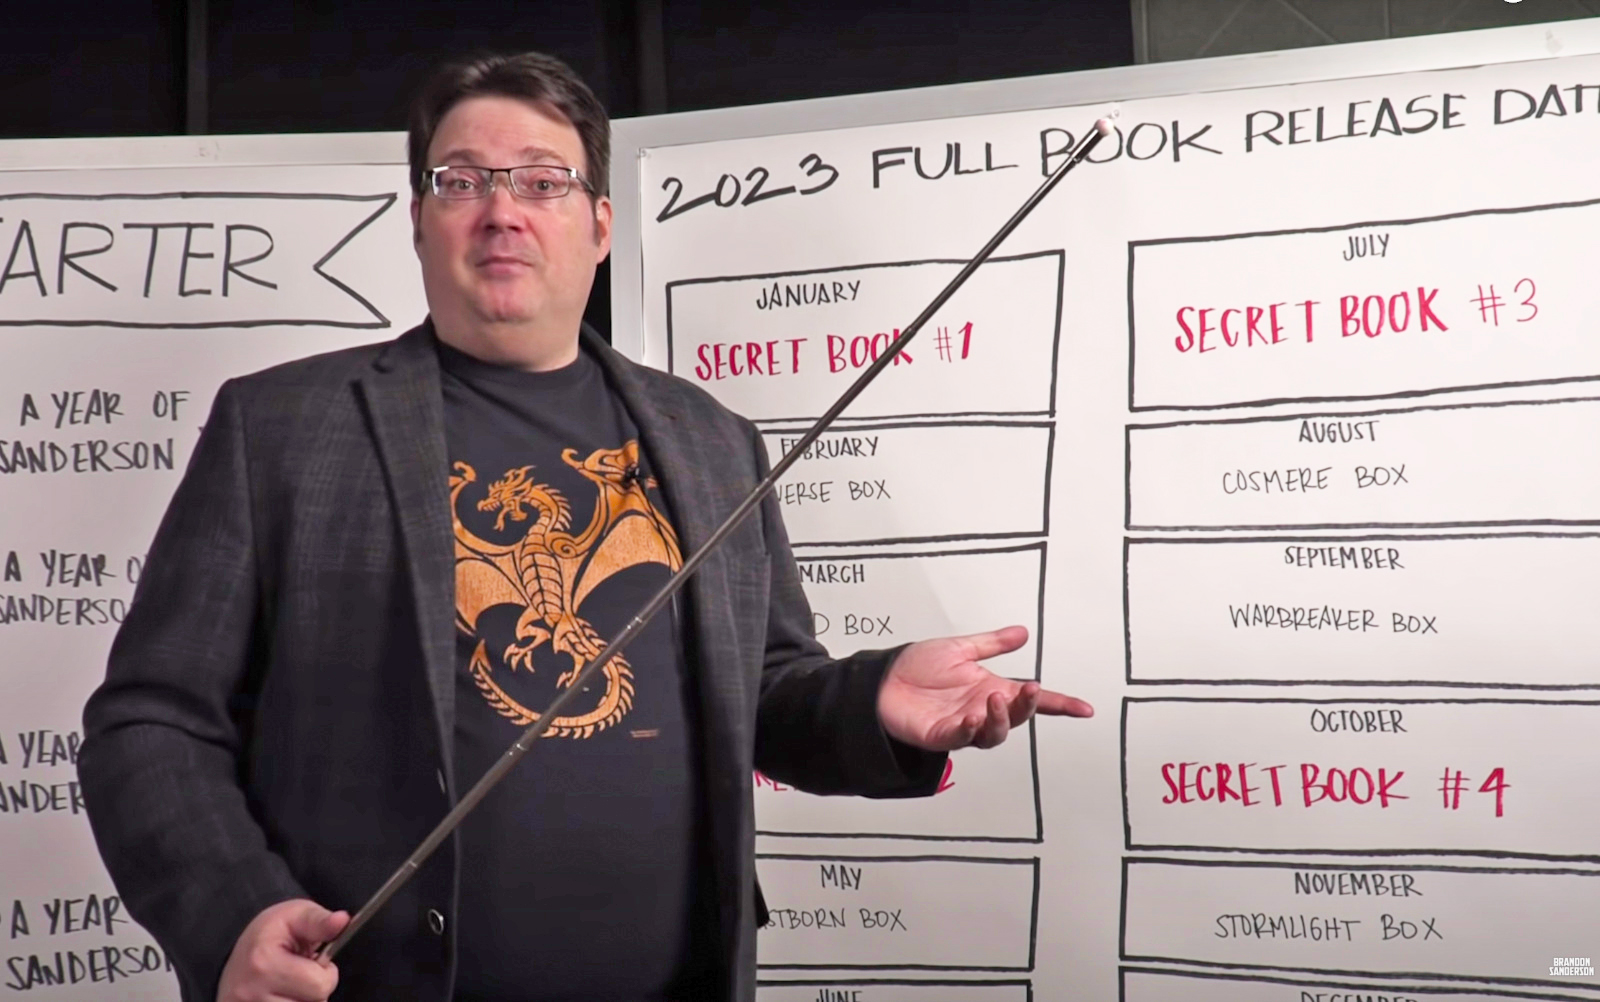 ARTER
A YEAR OF
SANDERSON
A YEAR
SANDERSO
YEAR
NDER
A YEAR
SANDERSO
2023 FULL BOOK RELEASE DAT
JANUARY
SECRET BOOK #1
FEBRUARY
VERSE BOX
MARCH
BOX
2
MAY
STBORN BOX
JUNE
JULY
SECRET BOOK #3
AUGUST
COSMERE BOX
SEPTEMBER
WARBREAKER BOX
OCTOBER
SECRET BOOK #4
NOVEMBER
STORMLIGHT BOX
DECEMBER
BRANDON
SANDERSON